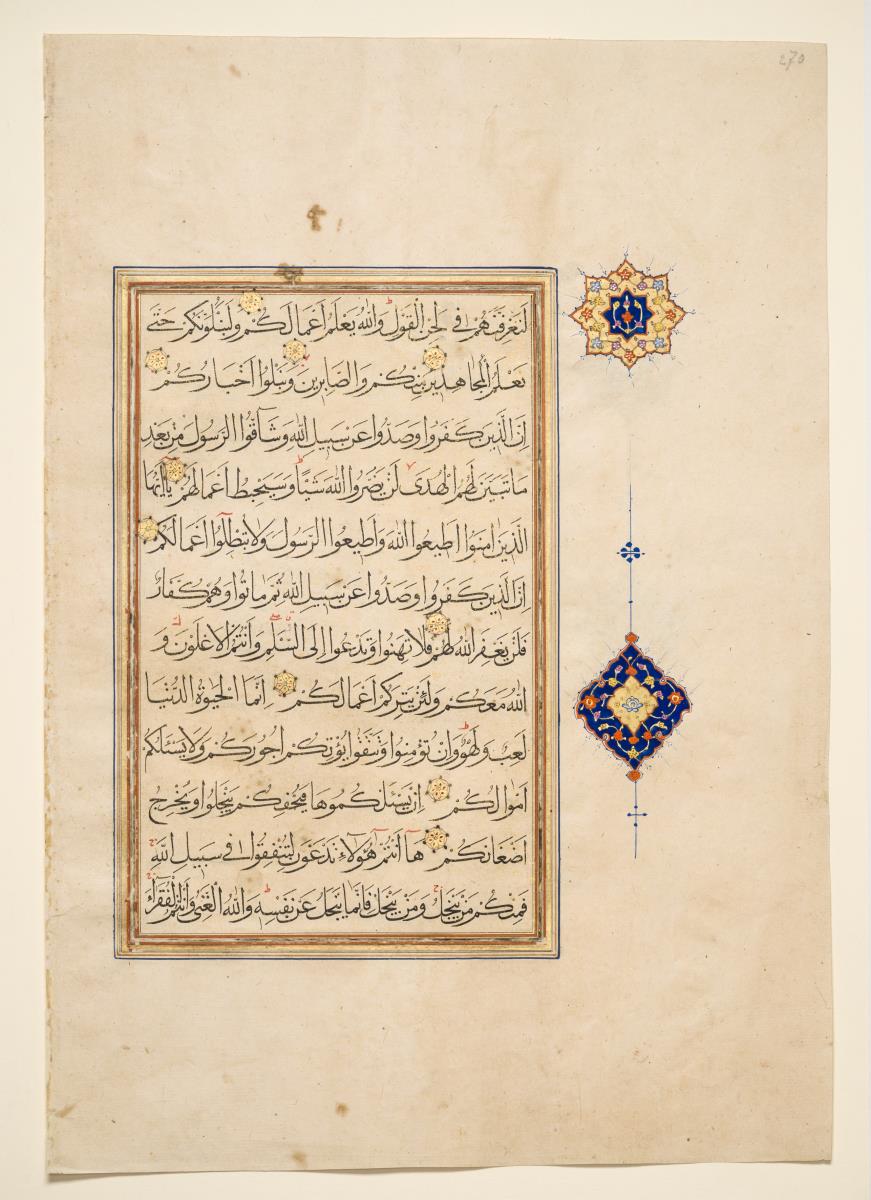 270
لَتَعْرِفَنَّهُمْ فِي لَحْنِ الْقَوْلِ وَاللَّهُ يَعْلَمُ أَعْمَالَكُمْ وَلَنَبْلُوَنَّكُمْ حَتَّى
نَعْلَمَ الْمُجَاهِدِينَ مِنْكُمْ وَالصَّابِرِينَ وَنَبْلُوَا أَخْبَارَكُمْ
إِنَّ الَّذِينَ كَفَرُوا وَصَدُّوا عَنْ سَبِيلِ اللَّهِ وَشَاقُّوا الرَّسُولَ مِنْ بَعْدِ
مَا تَبَيَّنَ لَهُمُ الْهُدَى لَنْ يَضُرُّوا اللَّهَ شَيْئًا وَسَيُحْبِطُ أَعْمَالَهُمْ يَا أَيُّهَا
الَّذِينَ آمَنُوا أَطِيعُوا اللَّهَ وَأَطِيعُوا الرَّسُولَ وَلَا تُبْطِلُوا أَعْمَالَكُمْ
إِنَّ الَّذِينَ كَفَرُوا وَصَدُّوا عَنْ سَبِيلِ اللَّهِ ثُمَّ مَاتُوا وَهُمْ كُفَّارٌ
فَلَنْ يَغْفِرَ اللَّهُ لَهُمْ فَلَا تَهِنُوا وَتَدْعُوا إِلَى السَّلْمِ وَأَنْتُمُ الْأَعْلَوْنَ وَ
اللَّهُ مَعَكُمْ وَلَنْ يَتِرَكُمْ أَعْمَالَكُمْ إِنَّمَا الْحَيٰوةُ الدُّنْيَا
لَعِبٌ وَلَهْوٌ وَإِنْ تُؤْمِنُوا وَتَتَّقُوا يُؤْتِكُمْ أُجُورَكُمْ وَلَا يَسْئَلْكُمْ
أَمْوَالَكُمْ إِنْ يَسْئَلْكُمُوهَا فَيُحْفِكُمْ تَبْخَلُوا وَيُخْرِجْ
أَضْغَانَكُمْ هَا أَنْتُمْ هٰؤُلَاءِ تُدْعَوْنَ لِتُنْفِقُوا فِي سَبِيلِ اللَّهِ
فَمِنْكُمْ مَنْ يَبْخَلُ وَمَنْ يَبْخَلْ فَإِنَّمَا يَبْخَلُ عَنْ نَفْسِهِ وَاللَّهُ الْغَنِيُّ وَأَنْتُمُ الْفُقَرَاءُ